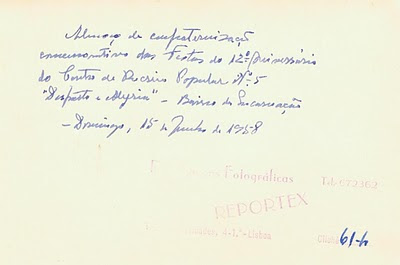 Almoço de confraternização
comemorativo das Festas do 12º Aniversário
do Centro de Recreio Popular Nº 5
"Desporto e Alegria" - Bairro da Encarnação
- Domingo, 15 de Junho de 1958
Fotográficas Telef. 672362
REPORTEX
4-1.º-Lisboa
Cliché 61-h